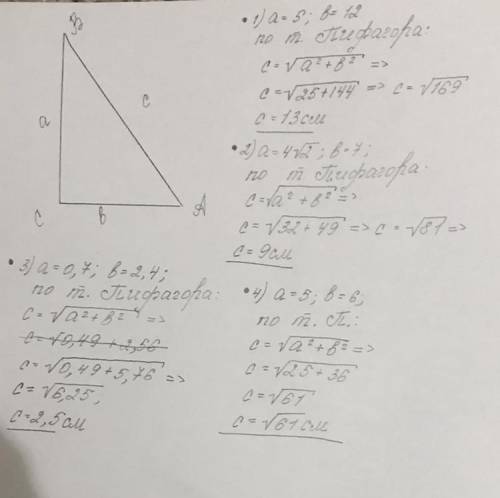 B
a
c
C
b
A
• 1) a=5; b=12
по т. Пифагора:
c=√a²+b² =>
c=√25+144 => c=√169
c=13см
• 2) a=4√2; b=7;
по т. Пифагора:
c=√a²+b² =>
c=√32+49 => c=√81 =>
c=9см
• 3) a=0,7; b=2,4;
по т. Пифагора:
c=√a²+b² =>
c=√0,49+2,56
c=√0,49+5,76 =>
c=√6,25,
c=2,5см
• 4) a=5; b=6,
по т. П.:
c=√a²+b² =>
c=√25+36
c=√61
c=√61см